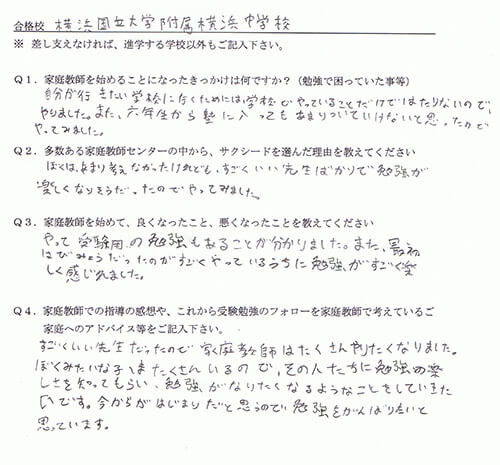 合格校 横浜国立大学附属横浜中学校
※ 差し支えなければ、進学する学校以外もご記入下さい。
Q１．家庭教師を始めることになったきっかけは何ですか？（勉強で困っていた事等）
自分が行きたい学校に行くためには、学校でやっていることだけではたりないので
やりました。また、六年生から塾に入ってもあまりついていけないと思ったので
やってみました。
Q２．多数ある家庭教師センターの中から、サクシードを選んだ理由を教えてください
ぼくは、あまり考えなかったけれども、すごくいい先生ばかりで勉強が
楽しくなりそうだったのでやってみました。
Q３．家庭教師を始めて、良くなったこと、悪くなったことを教えてください
やって受験用の勉強もあることが分かりました。また、最初
はびみょうだったのがすごくやっているうちに勉強がすごく楽
しく感じれました。
Q４．家庭教師での指導の感想や、これから受験勉強のフォローを家庭教師で考えているご
家庭へのアドバイス等をご記入下さい。
すごくいい先生だったので家庭教師はたくさんやりたくなりました。
ぼくみたいな子はまたくさんいるので、その人たちに勉強の楽
しさを知ってもらい、勉強がなりたくなるようなことをしていきた
いです。今からがはじまりだと思うので勉強をがんばりたいと
思っています。